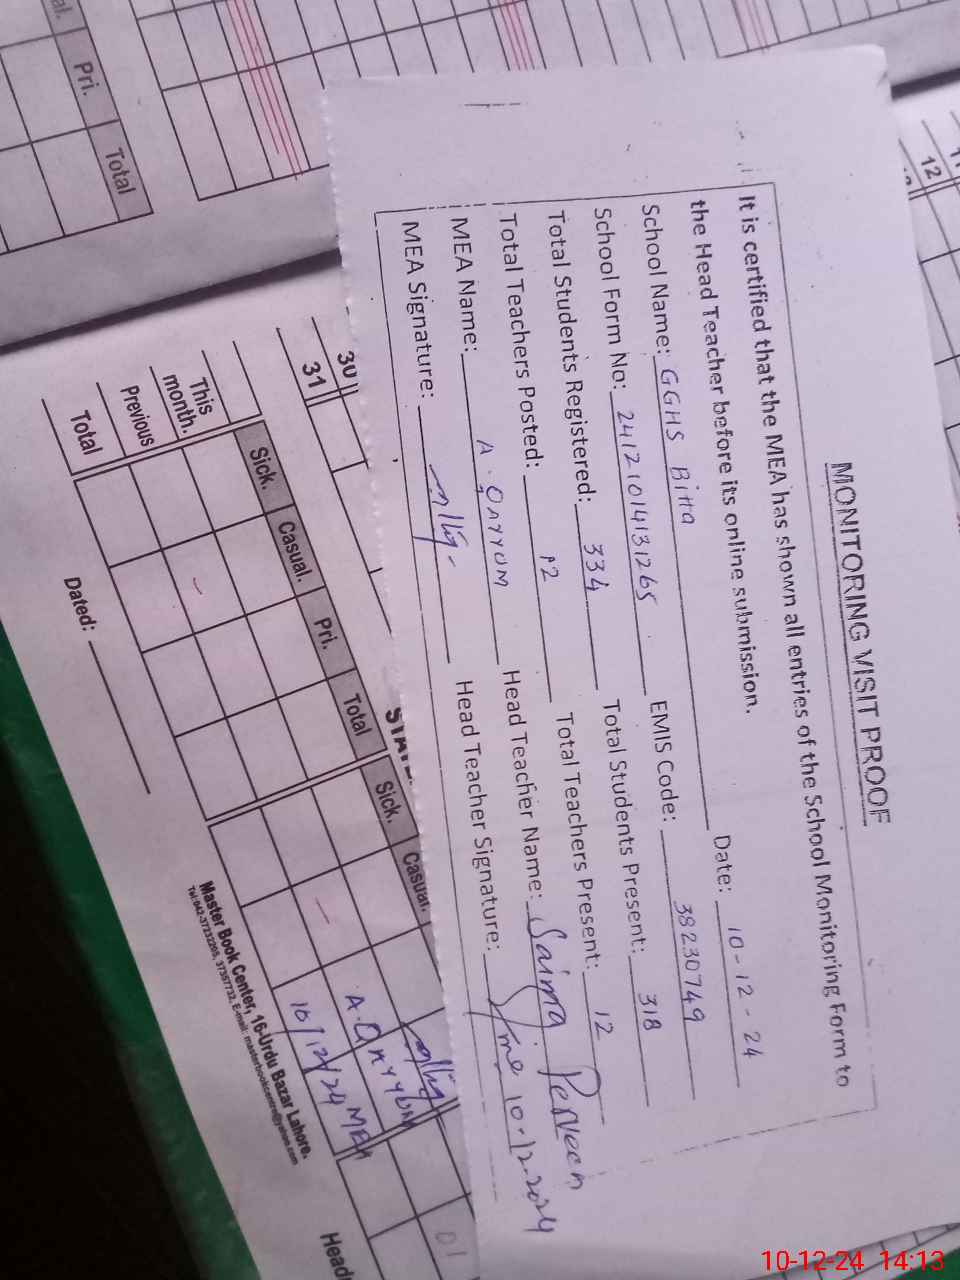 MONITORING VISIT PROOF
It is certified that the MEA has shown all entries of the School Monitoring Form to
the Head Teacher before its online submission.
Date: 10-12-24
School Name: GGHS Bitta
EMIS Code: 38230749
School Form No: 2412101413126S
Total Students Present: 318
Total Students Registered: 334
Total Teachers Present: 12
Total Teachers Posted: 12
Head Teacher Name: Saima Perveen
MEA Name: A. QAYYUM
Head Teacher Signature: 10-12-2024
MEA Signature:
al.
Pri.
Total
12
30
31
Sick. Casual. Pri. Total Sick. Casual.
This month.
Previous
Total
Dated:
A. QAYYUM
10/12/24 MEA
01
Master Book Center, 16-Urdu Bazar Lahore.
Head
10-12-24 14:13